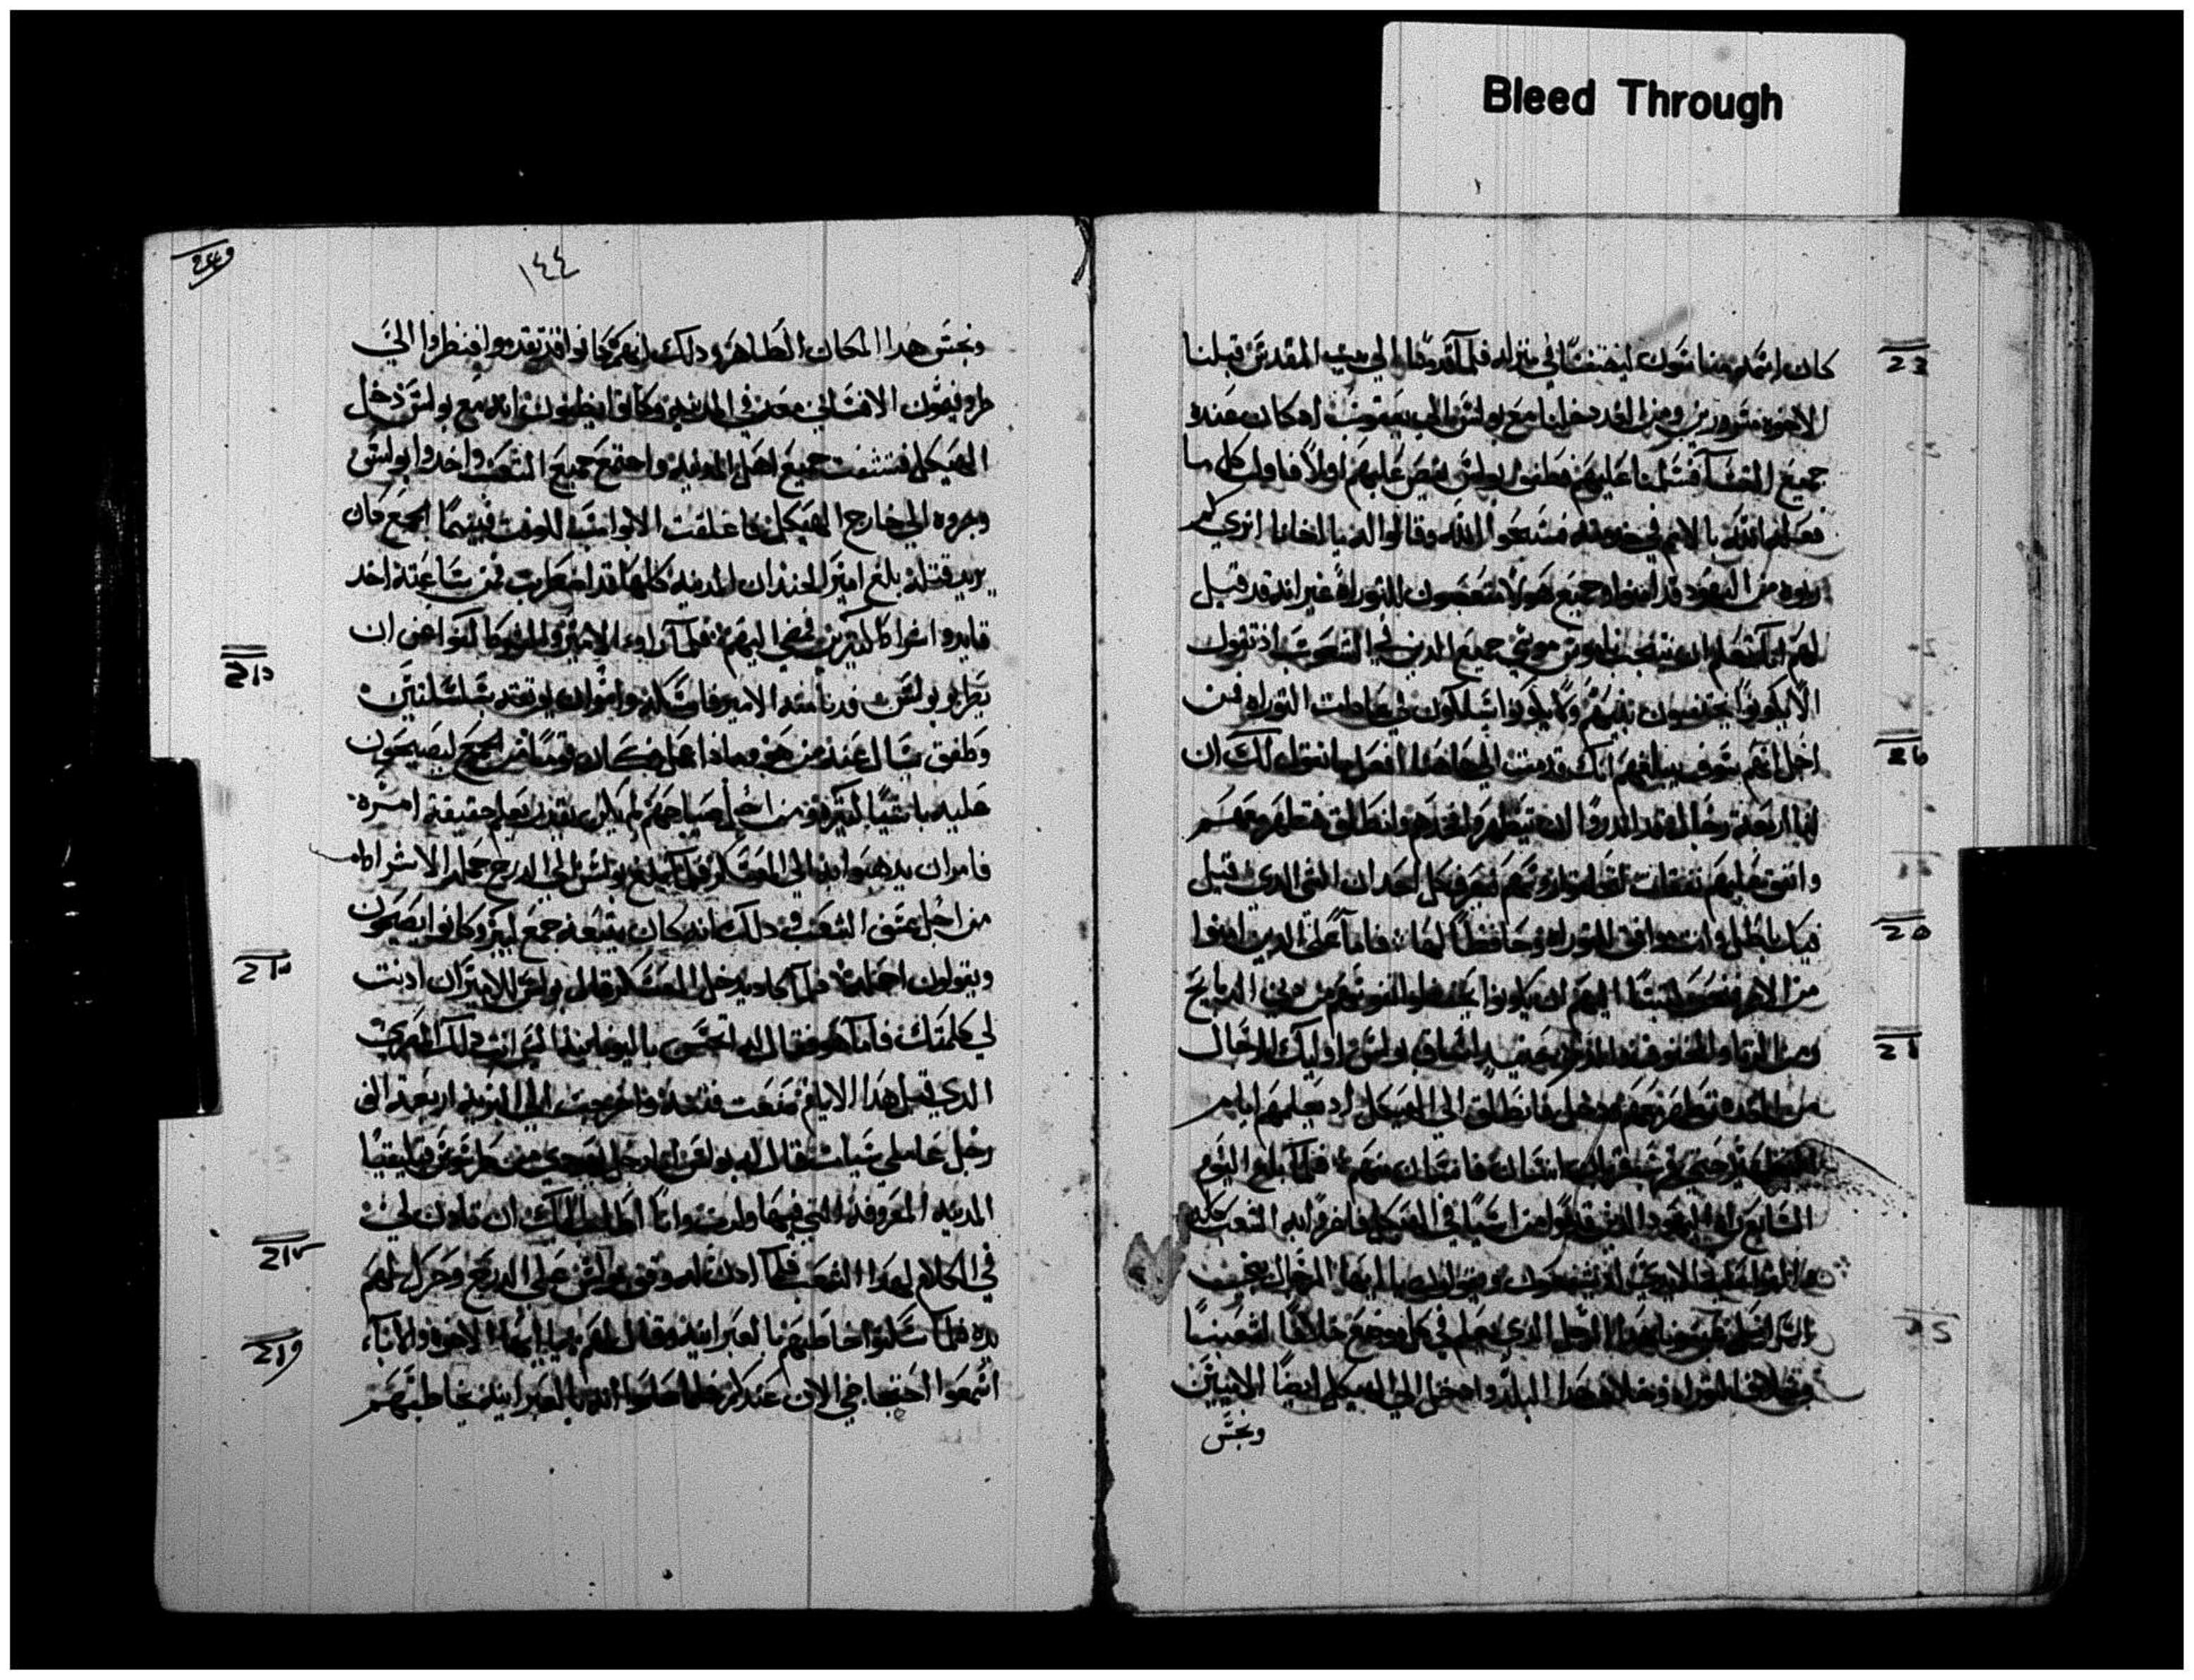 Bleed Through
كان اسمه مناسون ليضيفنا في منزله فلما قدمنا الي بيت المقدس قبلنا
الاخوه مسرورين ومن الغد دخلنا مع بولس الي يعقوب اد كان عنده
جميع القسا فسلمنا عليهم فطفق بولس يقص عليهم اولا فاول كل ما
فعله الله بالامم في خدمته فسبحوا الله وقالوا له يا اخانا اتري كم
ربوه من اليهود قد امنوا وجميع هولا متعصبون للتوراه غير انه قد قيل
لهم انك تعلم ان يجتنب ناموس موسي جميع الدين في الشعوب اذ تقول
الا يكونوا يختنون بنيهم ولا يكونوا يسلكون في عادات التوراه فمن
اجل انهم سوف يبلغهم انك قدمت الي هاهنا افعل ما نقول لك ان
لنا اربعة رجال قد اندروا ان يتطهروا فخدهم وانطلق فتطهر معهم
وانفق عليهم نفقات لكيما يحلقوا روسهم فيعرف كل احد ان الشي الدي قيل
فيك باطل وانت موافق للتوراه وحافظا لها فاما علي الدين امنوا
من الامم فنحن كتبنا اليهم ان يكونوا يحفظوا نفوسهم من دبح الدبايح
ومن الزنا والمخنوق والدم حينيد اساق بولس اوليك الرجال
من الغده وتطهر معهم ودخل فانطلق الي الهيكل اد يعلمهم ايام
التطهير حتي قرب قربان انسان فانسان منهم فلما بلغ اليوم
السابع راه اليهود الدين قدموا من اسيا في الهيكل فاغروا به الشعب كله
والقوا عليه الايدي اد يستغيتون ويقولون يا ايها الرجال بني
اسراييل اعينونا هدا الرجل الدي يعلم في كل موضع خلافا لشعبنا
وخلافا للتوراه وخلاف هدا البلد وادخل الي الهيكل ايضا الامميين
ونجس
١٤٤
ونجس هدا المكان الطاهر ودلك انهم كانوا قد تقدموا فنظروا الي
طروفيموس الافساني معه في المدينه وكانوا يظنون انه مع بولس دخل
الهيكل فتشغبت جميع اهل المدينه واجتمع جميع الشعب واخدوا بولس
وجروه الي خارج الهيكل فاغلقت الابواب للوقت فبينما الجمع كان
يريد قتله بلغ امير الجند ان المدينه كلها قد اضطربت فمن ساعته اخد
قايدا واشراطا كثيرين فمضي اليهم فلما راوا الامير والشرط كفوا عن ان
يضربوا بولس فدنا منه الامير فامسكه وامر ان يوثقه بسلسلتين
وطفق يسال عنه من هو وماذا عمل فكان قوما من الجمع يصيحون
عليه باشيا كثيره ومن اجل صياحهم لم يكن يقدر يعلم حقيقة امره
فامر ان يدهبوا به الي العسكر فلما بلغ بولس الي الدرج حمله الاشراط
من اجل عسف الشعب ودلك انه كان يتبعه جمع كبير وكانوا يصيحون
ويقولون احمله فلما كاد يدخل العسكر قال بولس للامير ان ادنت
لي كلمتك فاما هو فقال له اتحسن باليونانيه اليس انت دلك المصري
الدي قبل هدا الايام هيجت فتنه واخرجت الي البريه اربعة الف
رجل عاملي سيات فقال له بولس انا رجل يهودي من طرسوس قيليقيا
المدينه المعروفه التي فيها ولدت وانا اطلب اليك ان تادن لي
في الكلام لهدا الشعب فلما ادن له وقف بولس علي الدرج وحرك لهم
يده فلما سكتوا خاطبهم بالعبرانيه وقال لهم يا ايها الاخوه والابا
اسمعوا احتجاجي الان عندكم فلما علموا انه بالعبرانيه يخاطبهم